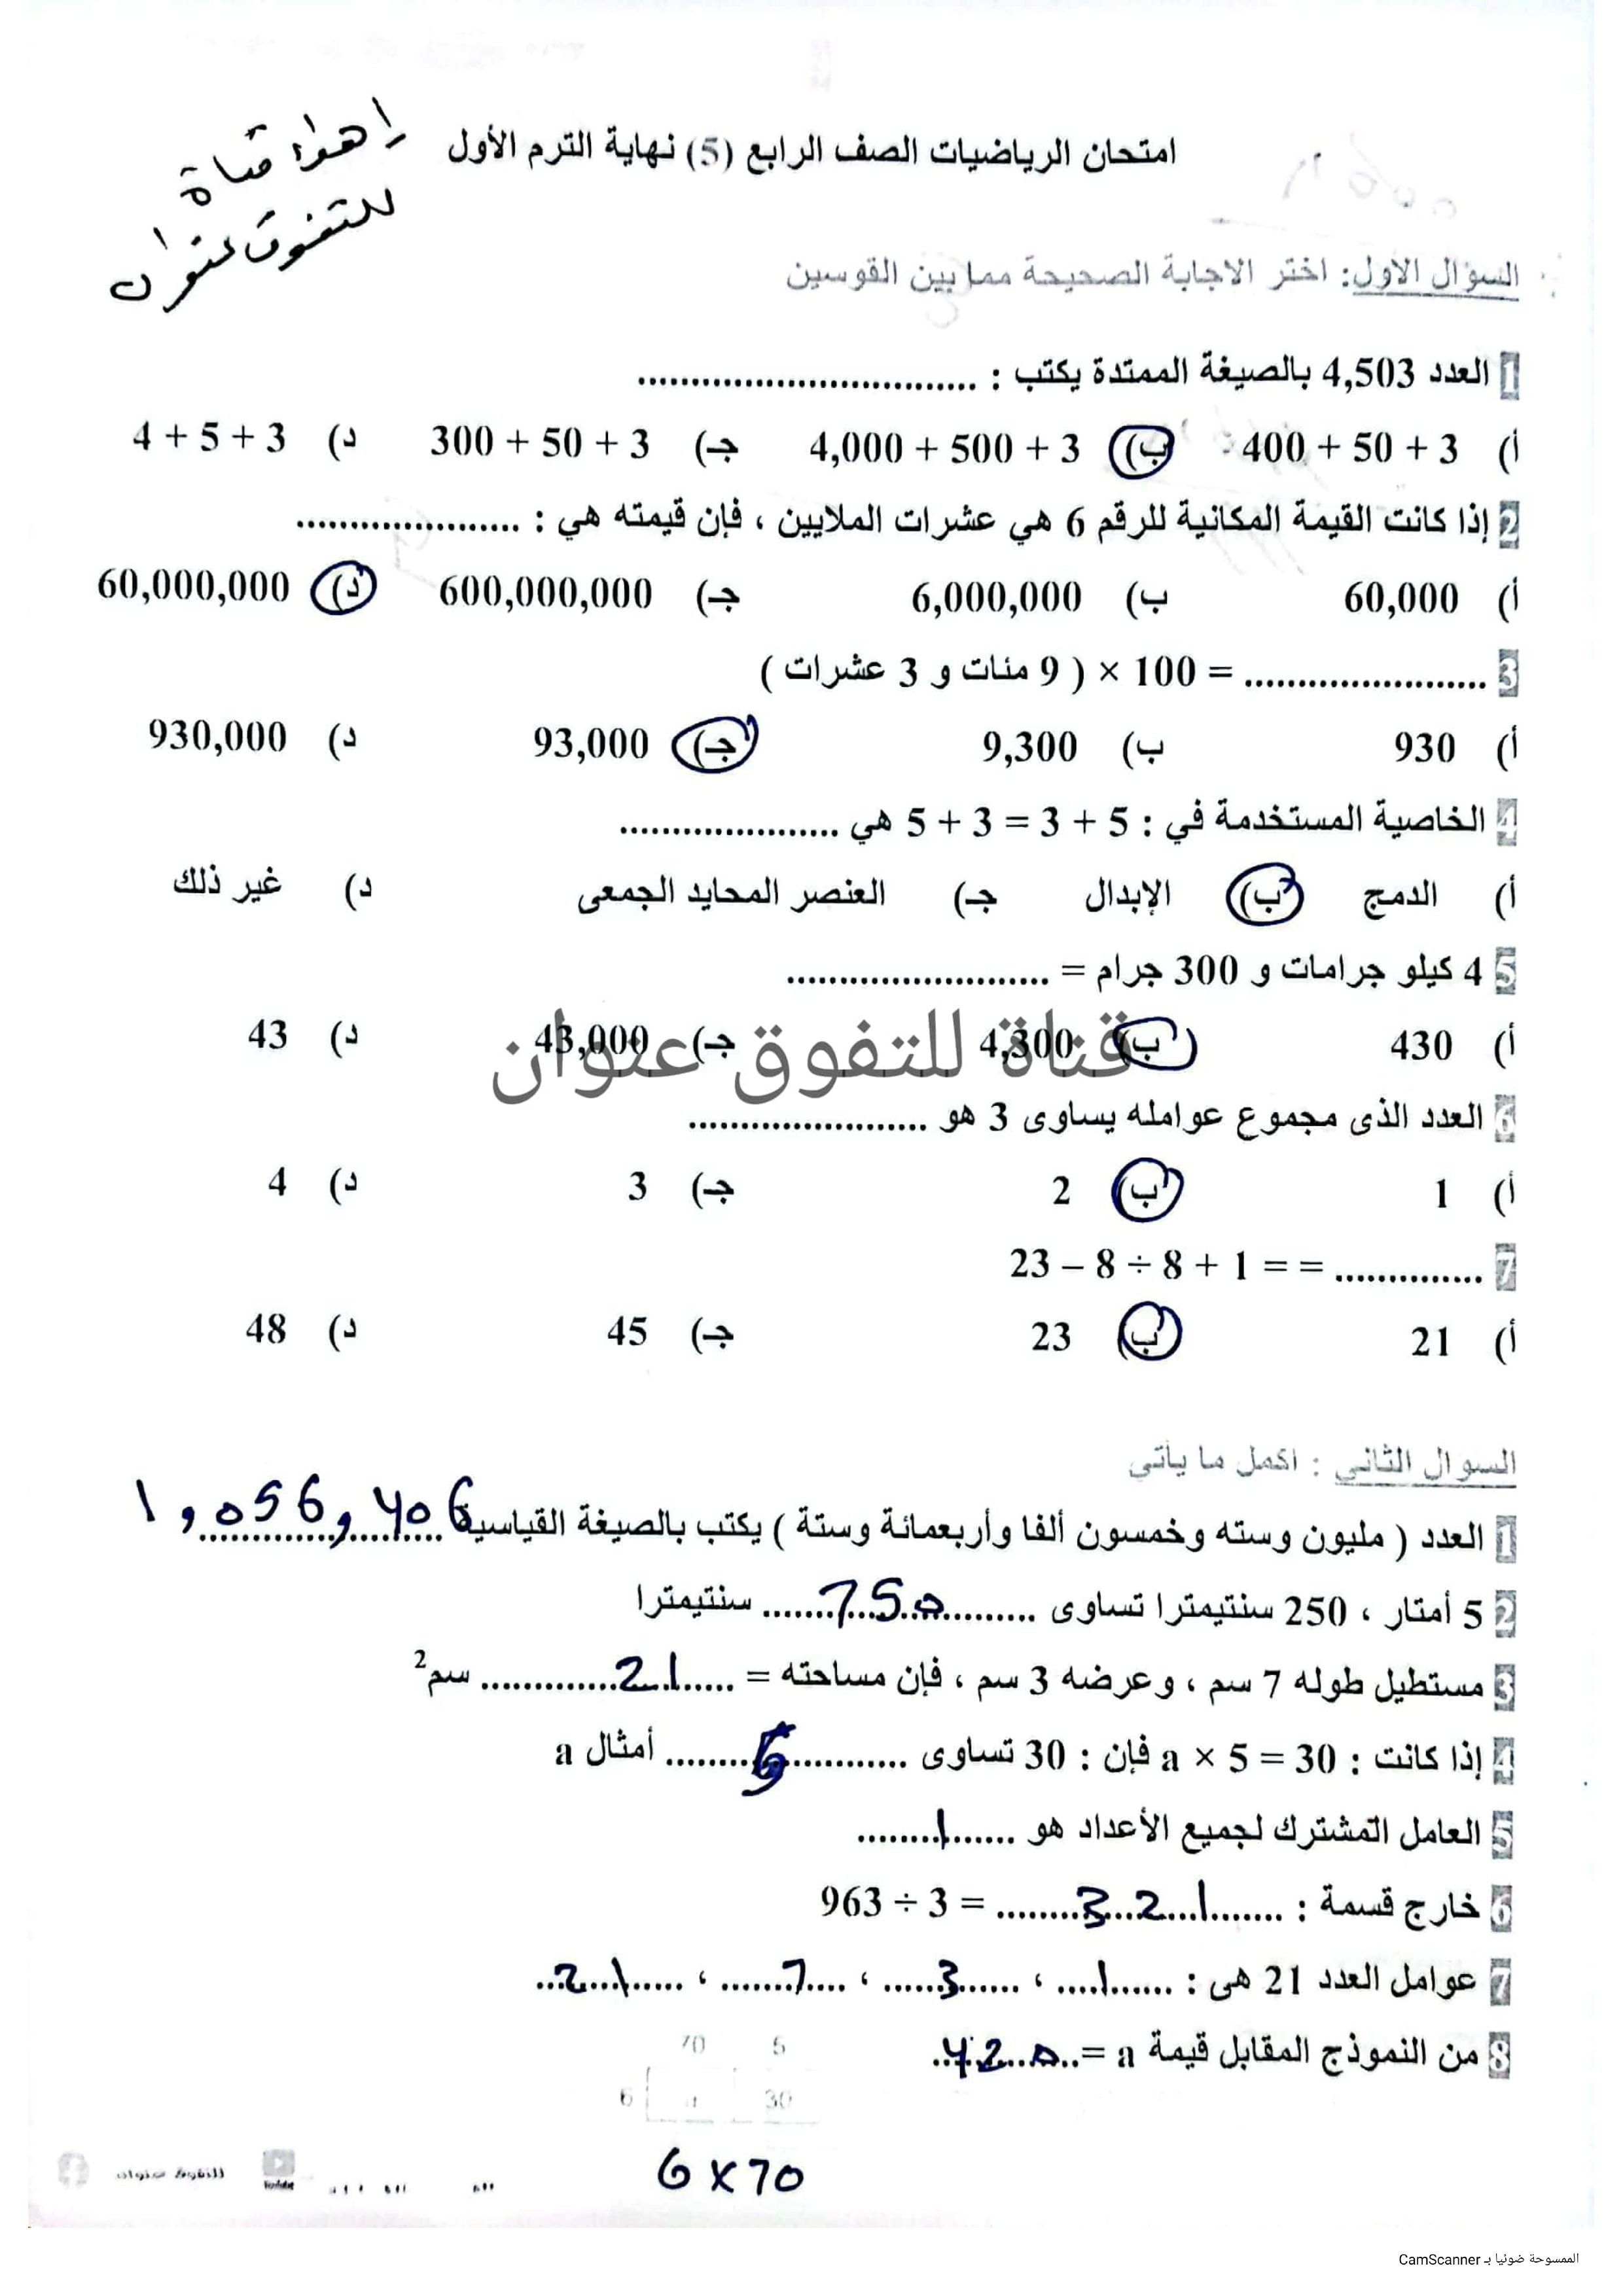 امتحان الرياضيات الصف الرابع (5) نهاية الترم الأول
اهداء قناة
للتفوق عنوان
السؤال الأول: اختر الاجابة الصحيحة مما بين القوسين
1 العدد 4,503 بالصيغة الممتدة يكتب : ................................
أ) 400 + 50 + 3 ب) 4,000 + 500 + 3 جـ) 300 + 50 + 3 د) 4 + 5 + 3
2 إذا كانت القيمة المكانية للرقم 6 هي عشرات الملايين ، فإن قيمته هي : .....................
أ) 60,000 ب) 6,000,000 جـ) 600,000,000 د) 60,000,000
3 ....................... = 100 × ( 9 مئات و 3 عشرات )
أ) 930 ب) 9,300 جـ) 93,000 د) 930,000
4 الخاصية المستخدمة في : 5 + 3 = 3 + 5 هي .....................
أ) الدمج ب) الإبدال جـ) العنصر المحايد الجمعى د) غير ذلك
5 4 كيلو جرامات و 300 جرام = .........................
أ) 430 ب) 4,300 جـ) 43,000 د) 43
قناة للتفوق عنوان
6 العدد الذى مجموع عوامله يساوى 3 هو .......................
أ) 1 ب) 2 جـ) 3 د) 4
7 23 – 8 ÷ 8 + 1 = = ..............
أ) 21 ب) 23 جـ) 45 د) 48
السؤال الثاني : اكمل ما يأتي
1 العدد ( مليون وسته وخمسون ألفا وأربعمائة وستة ) يكتب بالصيغة القياسية 1,056,406
2 5 أمتار ، 250 سنتيمترا تساوى ...750... سنتيمترا
3 مستطيل طوله 7 سم ، وعرضه 3 سم ، فإن مساحته = ...21... سم²
4 إذا كانت : a × 5 = 30 فإن : 30 تساوى ............ أمثال a
5 العامل المشترك لجميع الأعداد هو ...1...
6 خارج قسمة : 963 ÷ 3 = ...321...
7 عوامل العدد 21 هى : ...1... ، ...3... ، ...7... ، ...21...
8 من النموذج المقابل قيمة a = 420
70 5
6 a 30
6 × 70
للتفوق عنوان
YouTube
الممسوحة ضوئيا بـ CamScanner